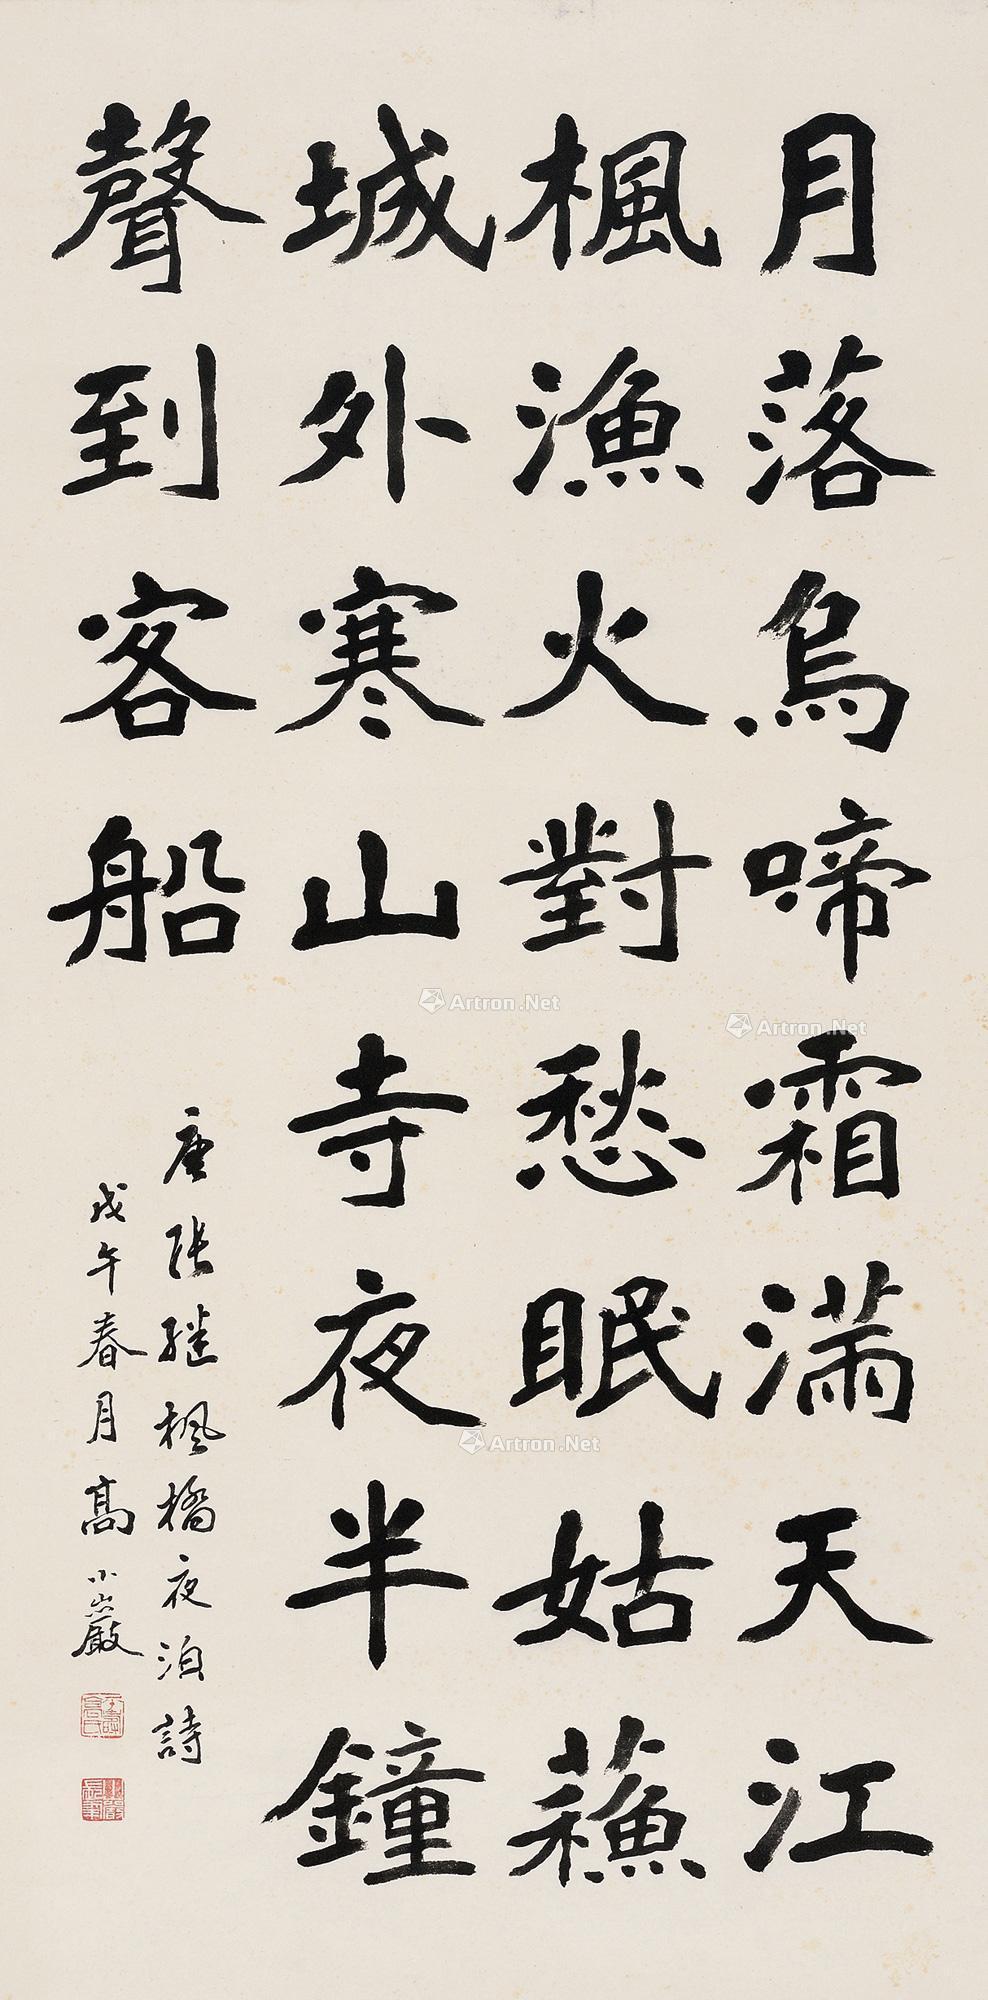 月落烏啼霜滿天江
楓漁火對愁眠姑蘓
城外寒山寺夜半鐘
聲到客船
唐張繼楓橋夜泊詩
戊午春月高小巖
Artron.Net
Artron.Net
Artron.Net